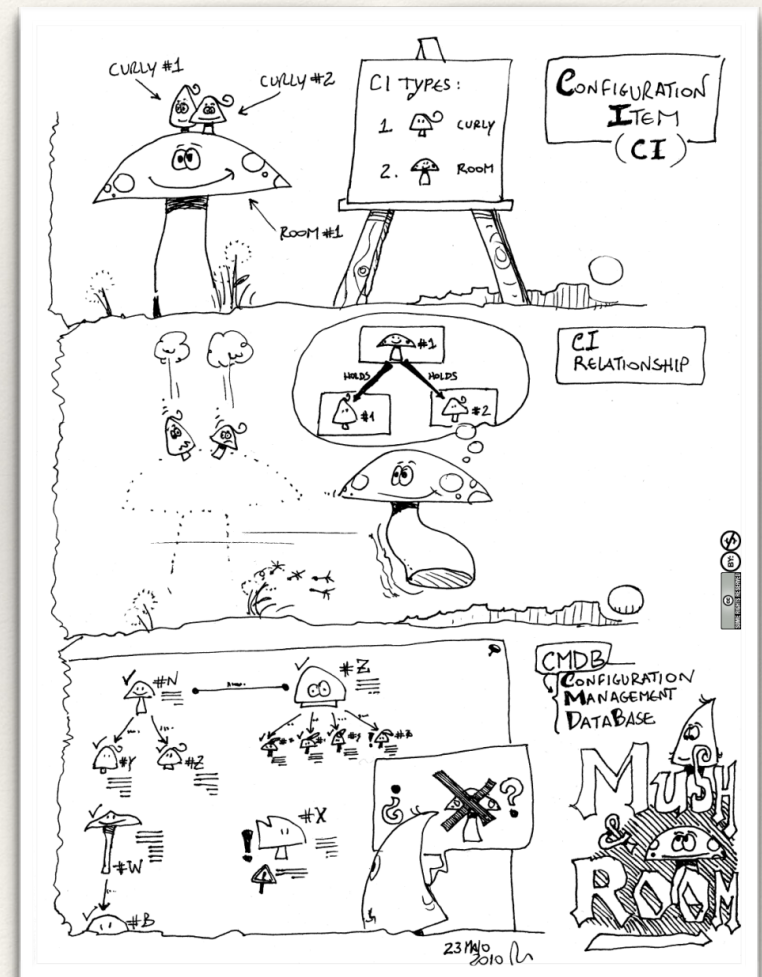 CURLY #1
CURLY #2
ROOM #1
CI TYPES:
1. CURLY
2. ROOM
CONFIGURATION
ITEM
(CI)
#1
HOLDS
HOLDS
#1
#2
CI
RELATIONSHIP
BY:
SOME RIGHTS RESERVED
#N
#Z
#Y
#Z
#W
#B
#X
¿
?
!
!
CMDB
CONFIGURATION
MANAGEMENT
DATABASE
MUSH
&
ROOM
23 MAYO
2010